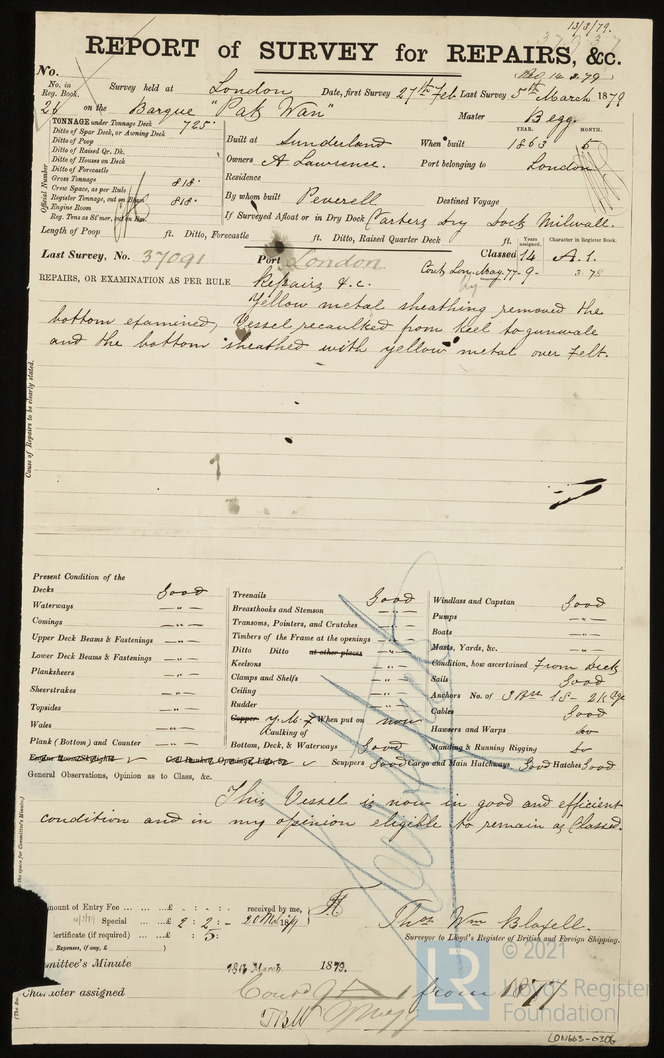 13/3/79.
REPORT of SURVEY for REPAIRS, &c.
No.
No. in Reg. Book. Survey held at London Date, first Survey 27th Feb Last Survey 5th March 1879
26 on the Barque "Pak Wan" Master Begg
TONNAGE under Tonnage Deck 725
Ditto of Spar Deck, or Awning Deck
Ditto of Poop
Ditto of Raised Qr. Dk.
Ditto of Houses on Deck
Ditto of Forecastle
Gross Tonnage 818
Crew Space, as per Rule
Register Tonnage, cut on Beam 818
Engine Room
Reg. Tons as St'mer, cut on Bm.
Official Number
YEAR. MONTH.
Built at Sunderland When built 1863 5
Owners A. Lawrence. Port belonging to London
Residence
By whom built Peverell Destined Voyage
If Surveyed Afloat or in Dry Dock Carters Dry Dock Milwall.
Length of Poop ft. Ditto, Forecastle ft. Ditto, Raised Quarter Deck ft.
Years assigned. Character in Register Book.
Last Survey, No. 37091 Port London Classed 14 A.1.
Cont. Lon. May. 77-9- 3.78
REPAIRS, OR EXAMINATION AS PER RULE
Repairs &c.
Yellow metal sheathing removed the
bottom examined, Vessel recaulked from keel to gunwale
and the bottom sheathed with yellow metal over felt.
Cause of Repairs to be clearly stated.
Present Condition of the
Decks Good
Waterways — " —
Comings — " —
Upper Deck Beams & Fastenings — " —
Lower Deck Beams & Fastenings — " —
Planksheers — " —
Sheerstrakes — " —
Topsides — " —
Wales — " —
Plank (Bottom) and Counter — " —
Engine Room Skylights
Treenails Good
Breasthooks and Stemson — " —
Transoms, Pointers, and Crutches — " —
Timbers of the Frame at the openings — " —
Ditto Ditto at other places — " —
Keelsons — " —
Clamps and Shelfs — " —
Ceiling — " —
Rudder — " —
Copper Y.M.F When put on now
Caulking of
Bottom, Deck, & Waterways Good
Scuppers Good Cargo and Main Hatchways Good Hatches Good
Windlass and Capstan Good
Pumps — " —
Boats — " —
Masts, Yards, &c. — " —
Condition, how ascertained From Deck
Sails Good
Anchors No. of 3 Brs 1S- 2 Kdge
Cables Good
Hawsers and Warps Do
Standing & Running Rigging Do
General Observations, Opinion as to Class, &c.
This Vessel is now in good and efficient
condition and in my opinion eligible to remain as Classed.
the space for Committee's Minute.)
mount of Entry Fee £ : : received by me,
Special £ 2 : 2 : -
ertificate (if required) £ : 5 :
Expenses, if any, £
Thos Wm Blaxell.
Surveyor to Lloyd's Register of British and Foreign Shipping.
mittee's Minute 18th March 1879.
Character assigned Contd 9 A 1 from 1877
LR
© 2021
Lloyd's Register
Foundation
LON663-0306